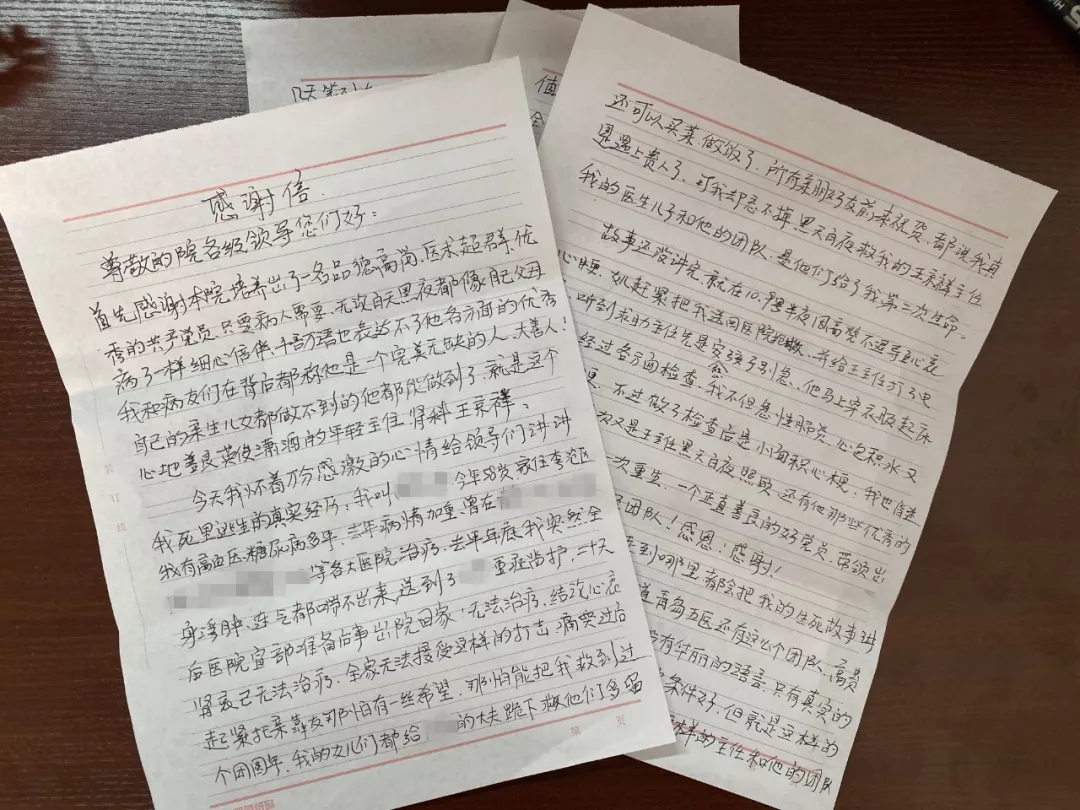 感谢信
尊敬的院各级领导您们好：
首先感谢本院培养出了一名品德高尚、医术超群、优
秀的共产党员，只要病人需要，无论白天黑夜都像自己父母
病了一样细心陪伴、千言万语也表达不了他各方面的优秀
我和病友们在背后都称他是一个完美无缺的人、大善人！
自己的亲生儿女都做不到的他都能做到了、就是这个
心地善良英俊潇洒的年轻主任 肾科 王京祥。
今天我怀着万分感激的心情给领导们讲讲
我死里逃生的真实经历：我叫 今年58岁、家住李沧区
我有高血压、糖尿病多年、去年病情加重、曾在
等各大医院治疗、去年年底、我突然全
身浮肿、连气都喘不出来、送到了 重症监护、二十天
后医院宣部准备后事 出院回家、无法治疗、结论心衰
肾衰已无法治疗、全家无法接受这样的打击、痛哭过后
起紧托亲靠友 那怕有一丝希望、那怕能把我救到过
个团圆年、我的女儿们都给 的大夫跪下 救他们多留
第 页
几天
值
全
还可以买菜、做饭了、所有亲朋好友前来祝贺、都说我真
是遇上贵人了、可我却忘不掉黑天白夜救我的王京祥主任
我的医生儿子和他的团队、是他们给了我第二次生命。
故事还没讲完、就在10. 半夜因高烧不退导致心衰
心梗、女儿赶紧把我送回医院抢救、并给王主任打了电
听到求助主任先是安慰了别急、他马上穿衣极起床
经过各方面检查、我不但急性肺炎、心包积水又
不过做了检查后是小面积心梗、我也借这
次又是王主任黑天白夜照顾、还有他那些优秀的
一次重生、一个正直善良的好党员、带领出
团队！感恩！感谢！
到哪里都会把我的生死故事讲
道青岛五医还有这么个团队、高贵
没有华丽的语言、只有真实的
条件好、但就是这样的
样的主任和他的团队